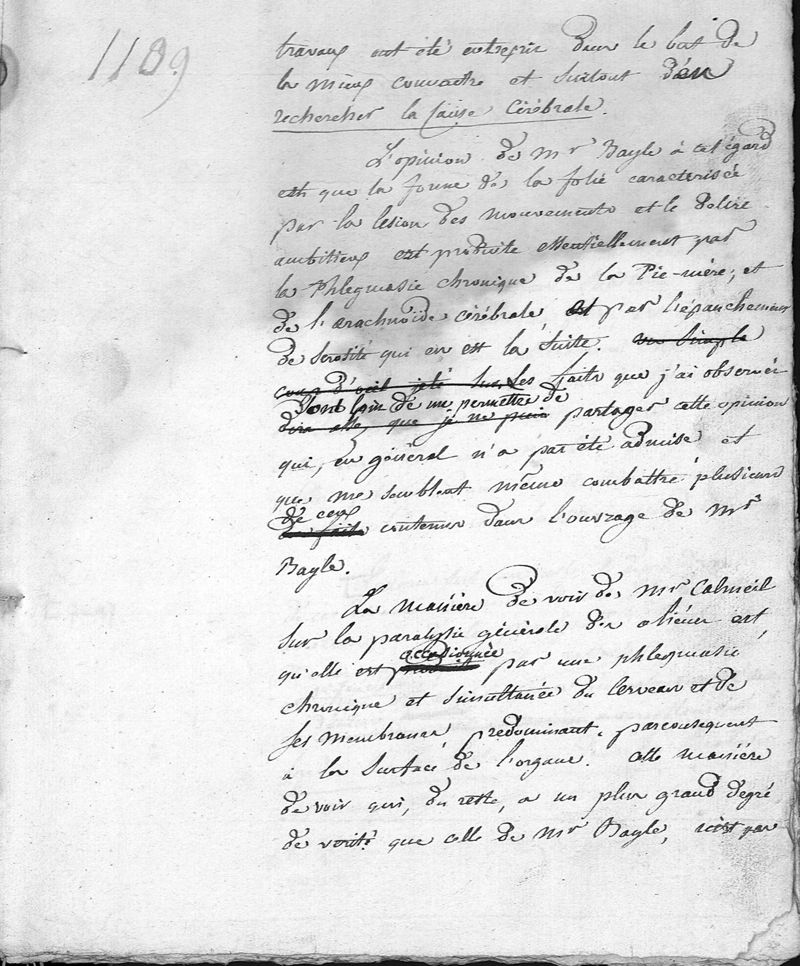 1189
travaux ont été entrepris dans le but de
la mieux connaitre et surtout d'en
rechercher la Cause Cérébrale.
L'opinion de Mr Bayle à cet égard
est que la forme de la folie caracterisée
par la lesion des mouvements et le délire
ambitieux est produite essentiellement par
la Phlegmasie chronique de la Pie-mère, et
de l'arachnoïde cérébrale et par l'épanchement
de serosité qui en est la suite. un simple
coup d'oeil jeté sur Les faits que j'ai observés
sont loin de me permettre de
dira assez que je ne puis partager cette opinion
qui, en général n'a pas été admise et
que me semblent même combattre plusieurs
de ceux
des faits contenus dans l'ouvrage de Mr
Bayle.
La manière de voir de Mr Calmeil
sur la paralysie générale des aliénés est
occasionnée
qu'elle est produite par une phlegmasie
chronique et simultanée du Cerveau et de
ses Membranes, predominant, parconsequent
à la surface de l'organe. Cette manière
de voir qui, du reste, a un plus grand degré
de verité que celle de Mr Bayle, n'est pas